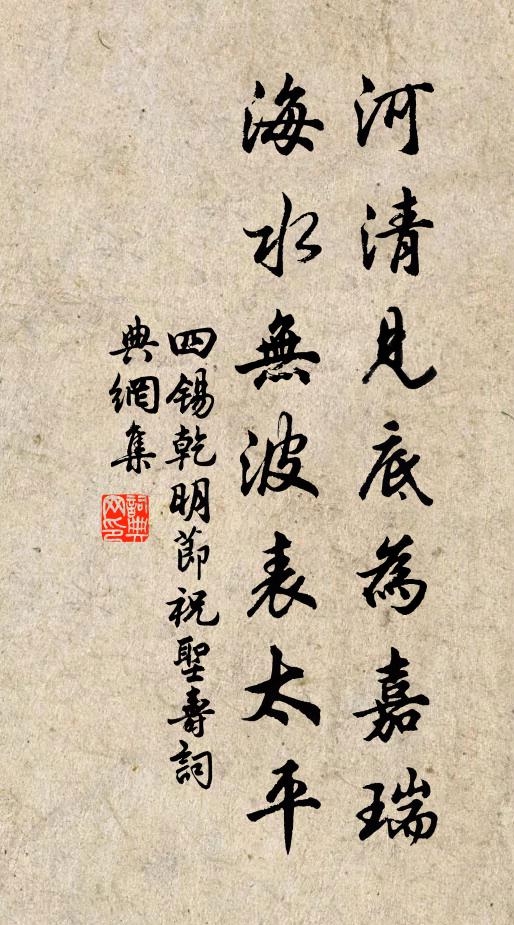 河清見底為嘉瑞
海水無波表太平
四錫乾明節祝聖壽詞
典網集
詞典网印